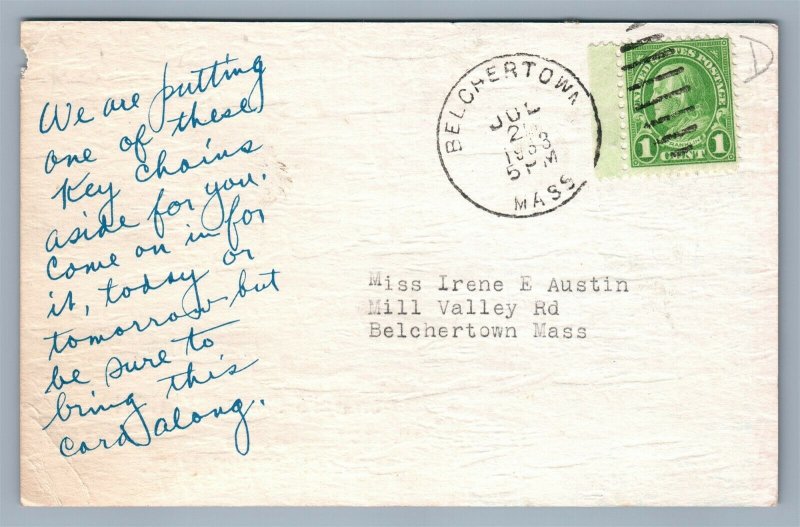 We are putting
one of these
key chains
aside for you.
Come on in for
it, today or
tomorrow but
be sure to
bring this
card along.
BELCHERTOWN
JUL
5 PM
MASS
UNITED STATES POSTAGE
1 CENT 1
D
Miss Irene E Austin
Mill Valley Rd
Belchertown Mass